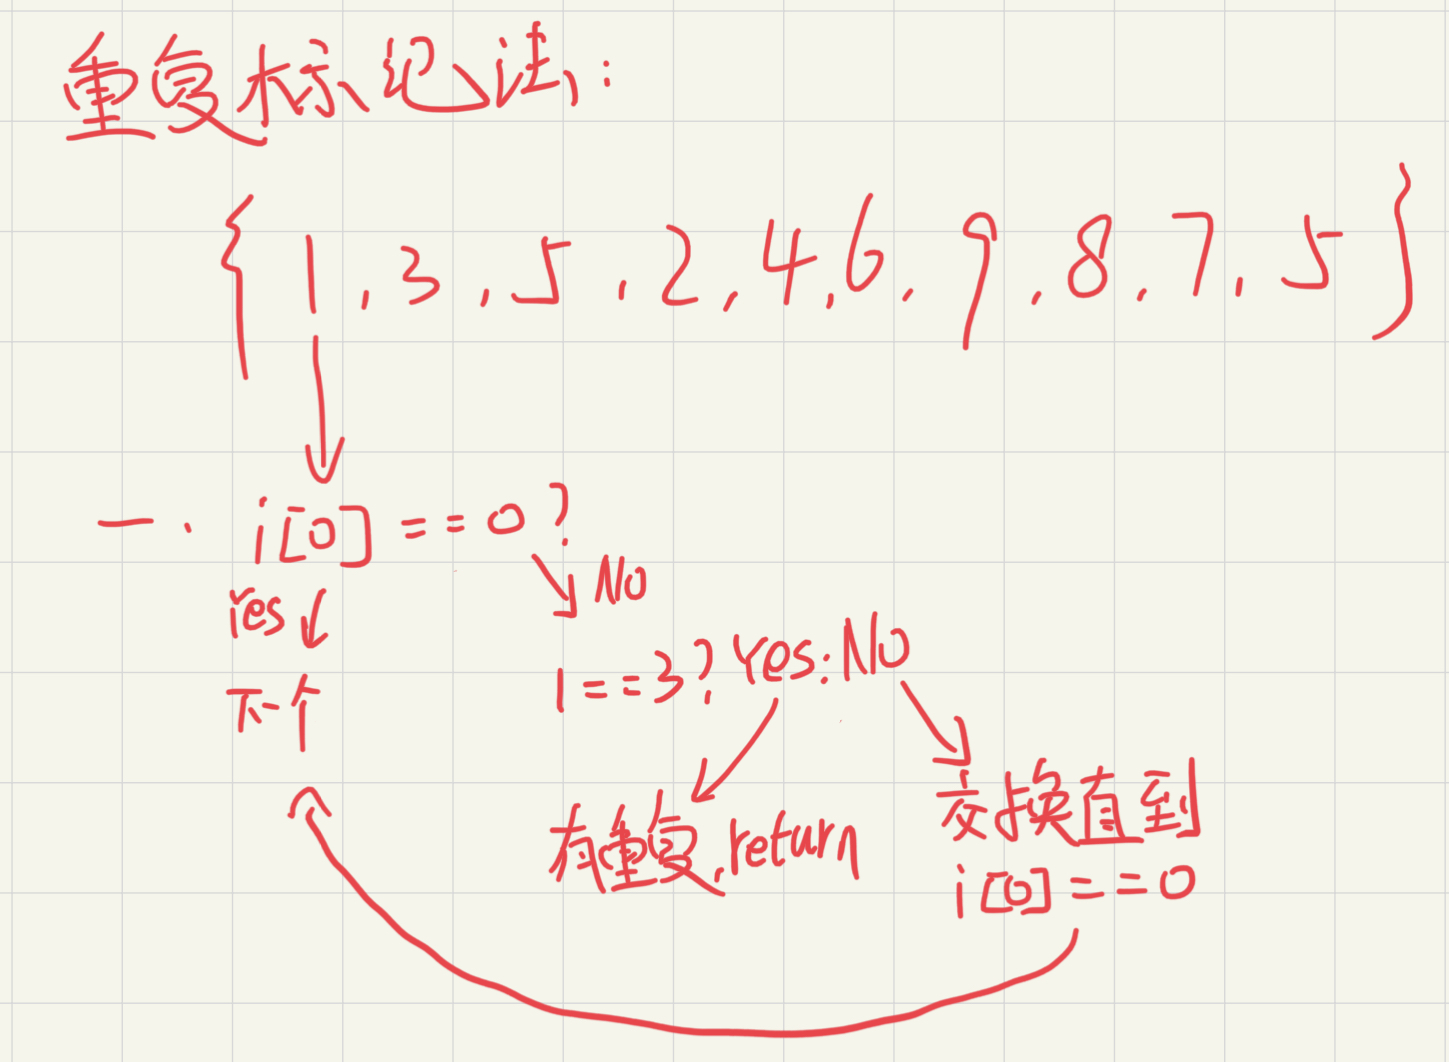 重复标记法:
{1,3,5,2,4,6,9,8,7,5}
一. i[0]==0?
Yes
No
下个
1==3?Yes:No
有重复,return
交换直到
i[0]==0